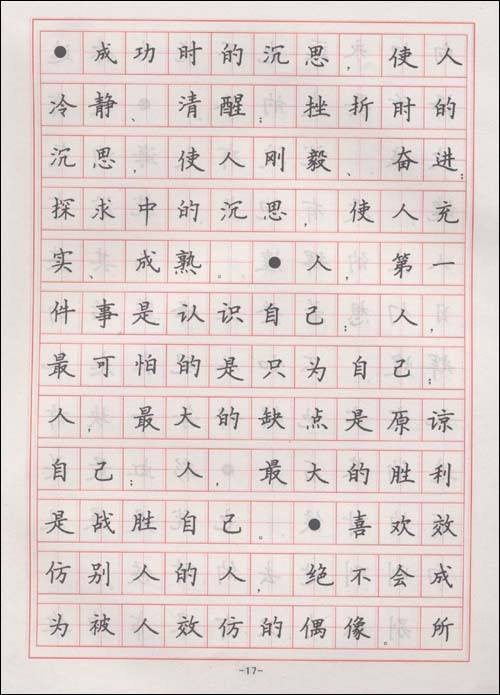 ●成功时的沉思，使人
冷静、清醒；挫折时的
沉思，使人刚毅、奋进；
探求中的沉思，使人充
实、成熟。●人，第一
件事是认识自己；人，
最可怕的是只为自己；
人，最大的缺点是原谅
自己；人，最大的胜利
是战胜自己。●喜欢效
仿别人的人，绝不会成
为被人效仿的偶像。所
-17-